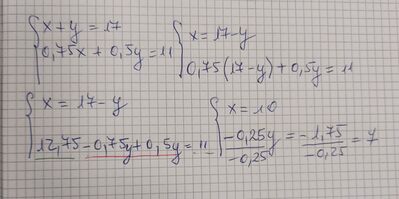 x+y=17
0,75x+0,5y=11
x=17-y
0,75(17-y)+0,5y=11
x=17-y
12,75-0,75y+0,5y=11
x=10
-0,25y/-0,25=-1,75/-0,25=7